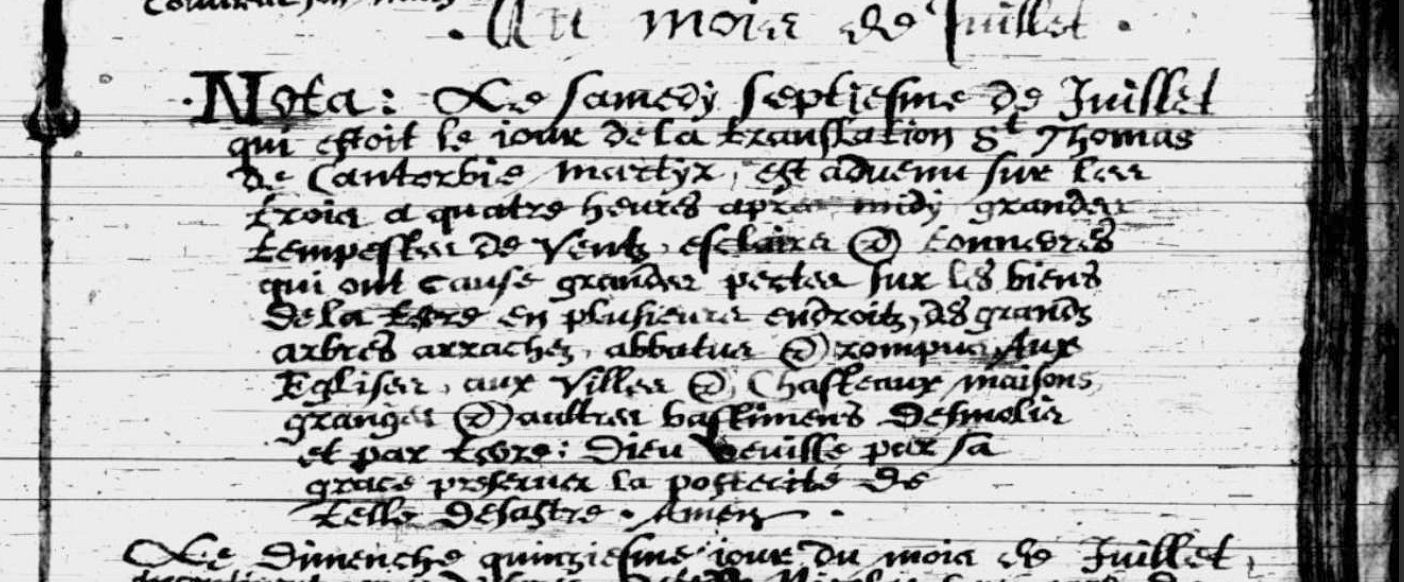 Au mois de Juillet.
Nota: Le samedy septiesme de Juillet
qui estoit le iour de la translation St Thomas
de Cantorbie martyr, est advenu sur les
trois a quatre heures apres midy grandes
tempestes de ventz, esclairs & tonnerres
qui ont cause grandes pertes sur les biens
de la terre en plusieurs endroitz, des grands
arbres arrachez, abbatus & rompus, Aux
Eglises, aux villes & Chasteaux maisons
granges & aultres bastimens desmolis
et par terre: Dieu veuille par sa
grace preserver la posterité de
telle desastre. Amen.
Le Dimenche quinziesme iour du mois de Juillet,